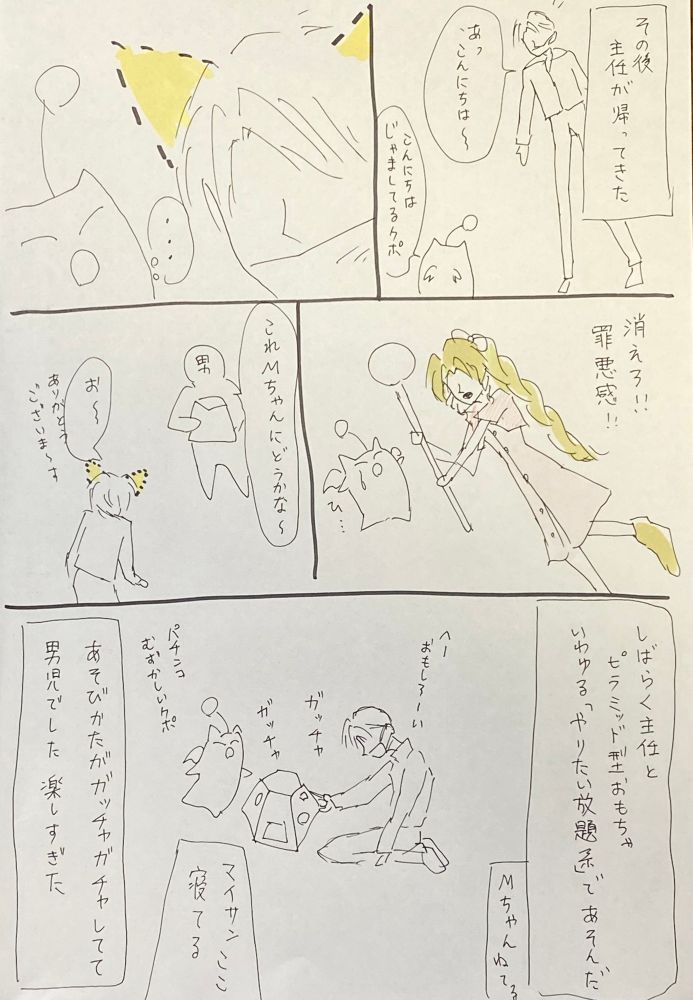 その後
主任が帰ってきた
あっ
こんにちは〜
こんにちは
じゃましてるクポ
・・・
消えろ!!
罪悪感!!
ひ…
これMちゃんにどうかな〜
男
お〜
ありがとう
ございま〜す
しばらく主任と
ピラミッド型おもちゃ
いわゆる「やりたい放題系」であそんだ
Mちゃんねてる
へー
おもしろーい
ガッチャ
ガッチャ
パチンコ
むずかしいクポ
マイサンここ
寝てる
あそびかたがガッチャガチャしてて
男児でした 楽しすぎた